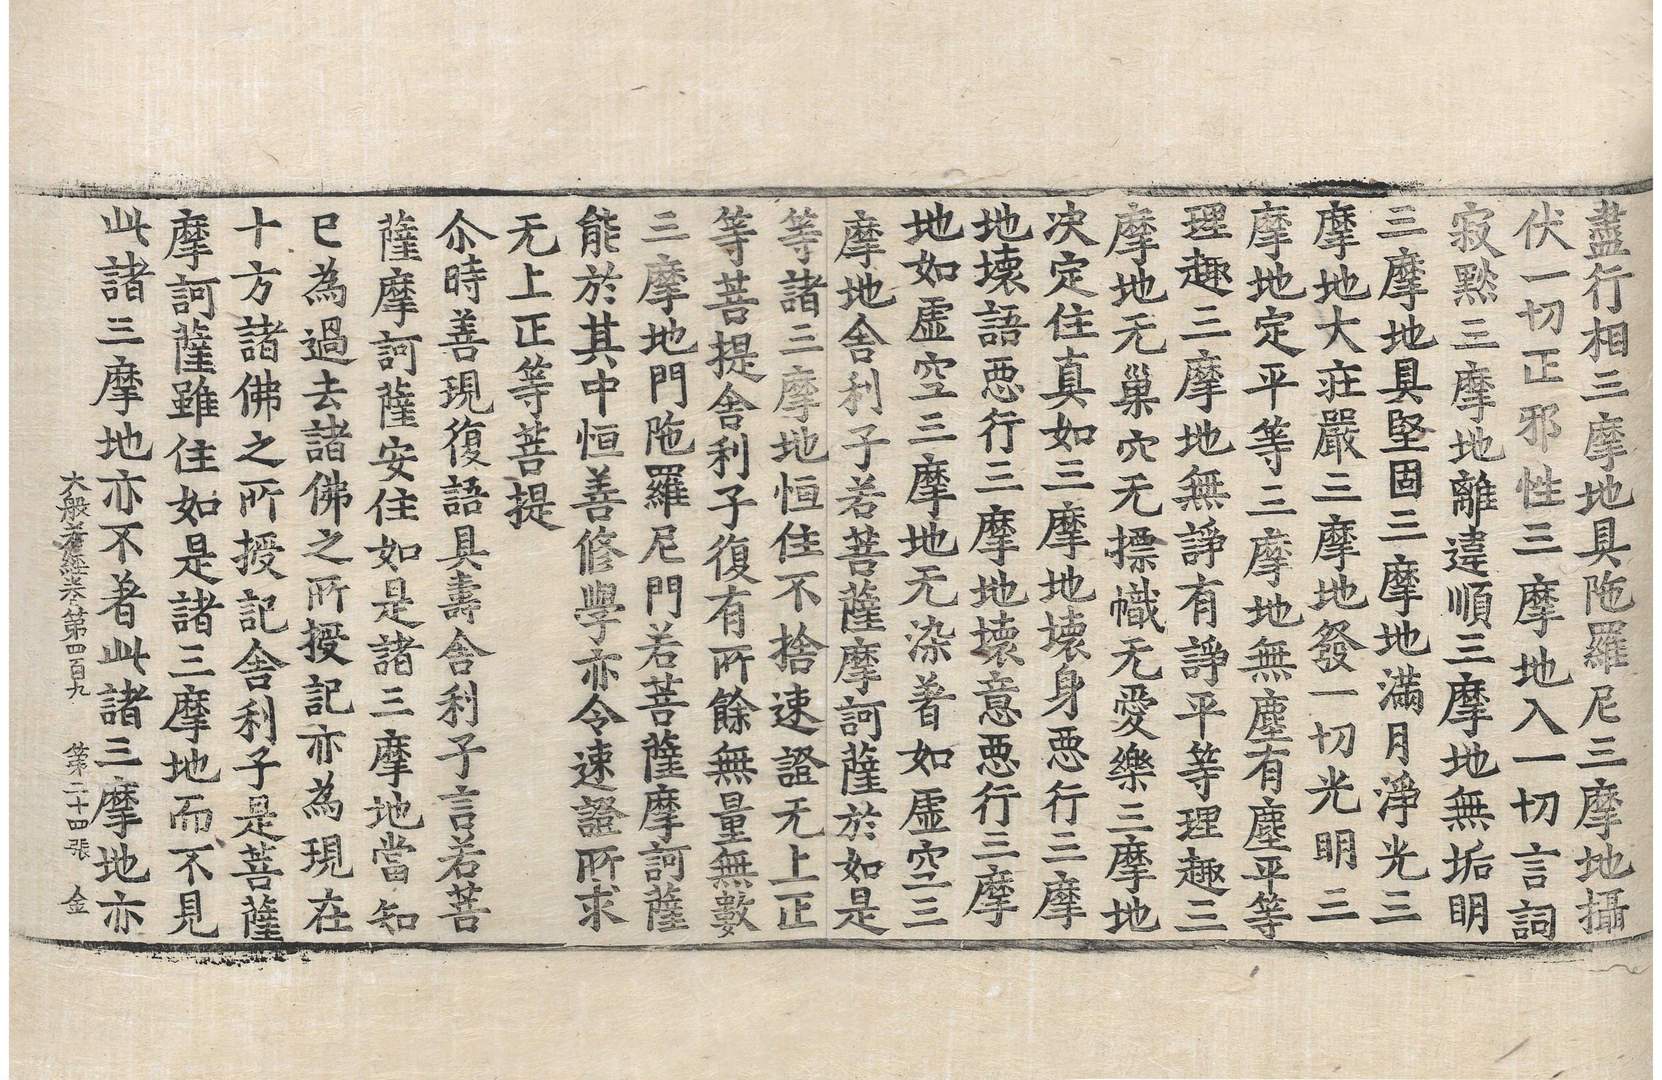 盡行相三摩地具陁羅尼三摩地攝
伏一切正邪性三摩地入一切言詞
寂黙三摩地離違順三摩地無垢明
三摩地具堅固三摩地滿月淨光三
摩地大莊嚴三摩地發一切光明三
摩地定平等三摩地無塵有塵平等
理趣三摩地無諍有諍平等理趣三
摩地无巢穴无摽幟无愛樂三摩地
决定住真如三摩地壞身惡行三摩
地壞語惡行三摩地壞意惡行三摩
地如虛空三摩地无染著如虛空三
摩地舍利子若菩薩摩訶薩於如是
等諸三摩地恒住不捨速證无上正
等菩提舍利子復有所餘無量無數
三摩地門陁羅尼門若菩薩摩訶薩
能於其中恒善修學亦令速證所求
无上正等菩提
尒時善現復語具壽舍利子言若菩
薩摩訶薩安住如是諸三摩地當知
已為過去諸佛之所授記亦為現在
十方諸佛之所授記舍利子是菩薩
摩訶薩雖住如是諸三摩地而不見
此諸三摩地亦不著此諸三摩地亦
大般若經卷第四百九 第二十四張 金